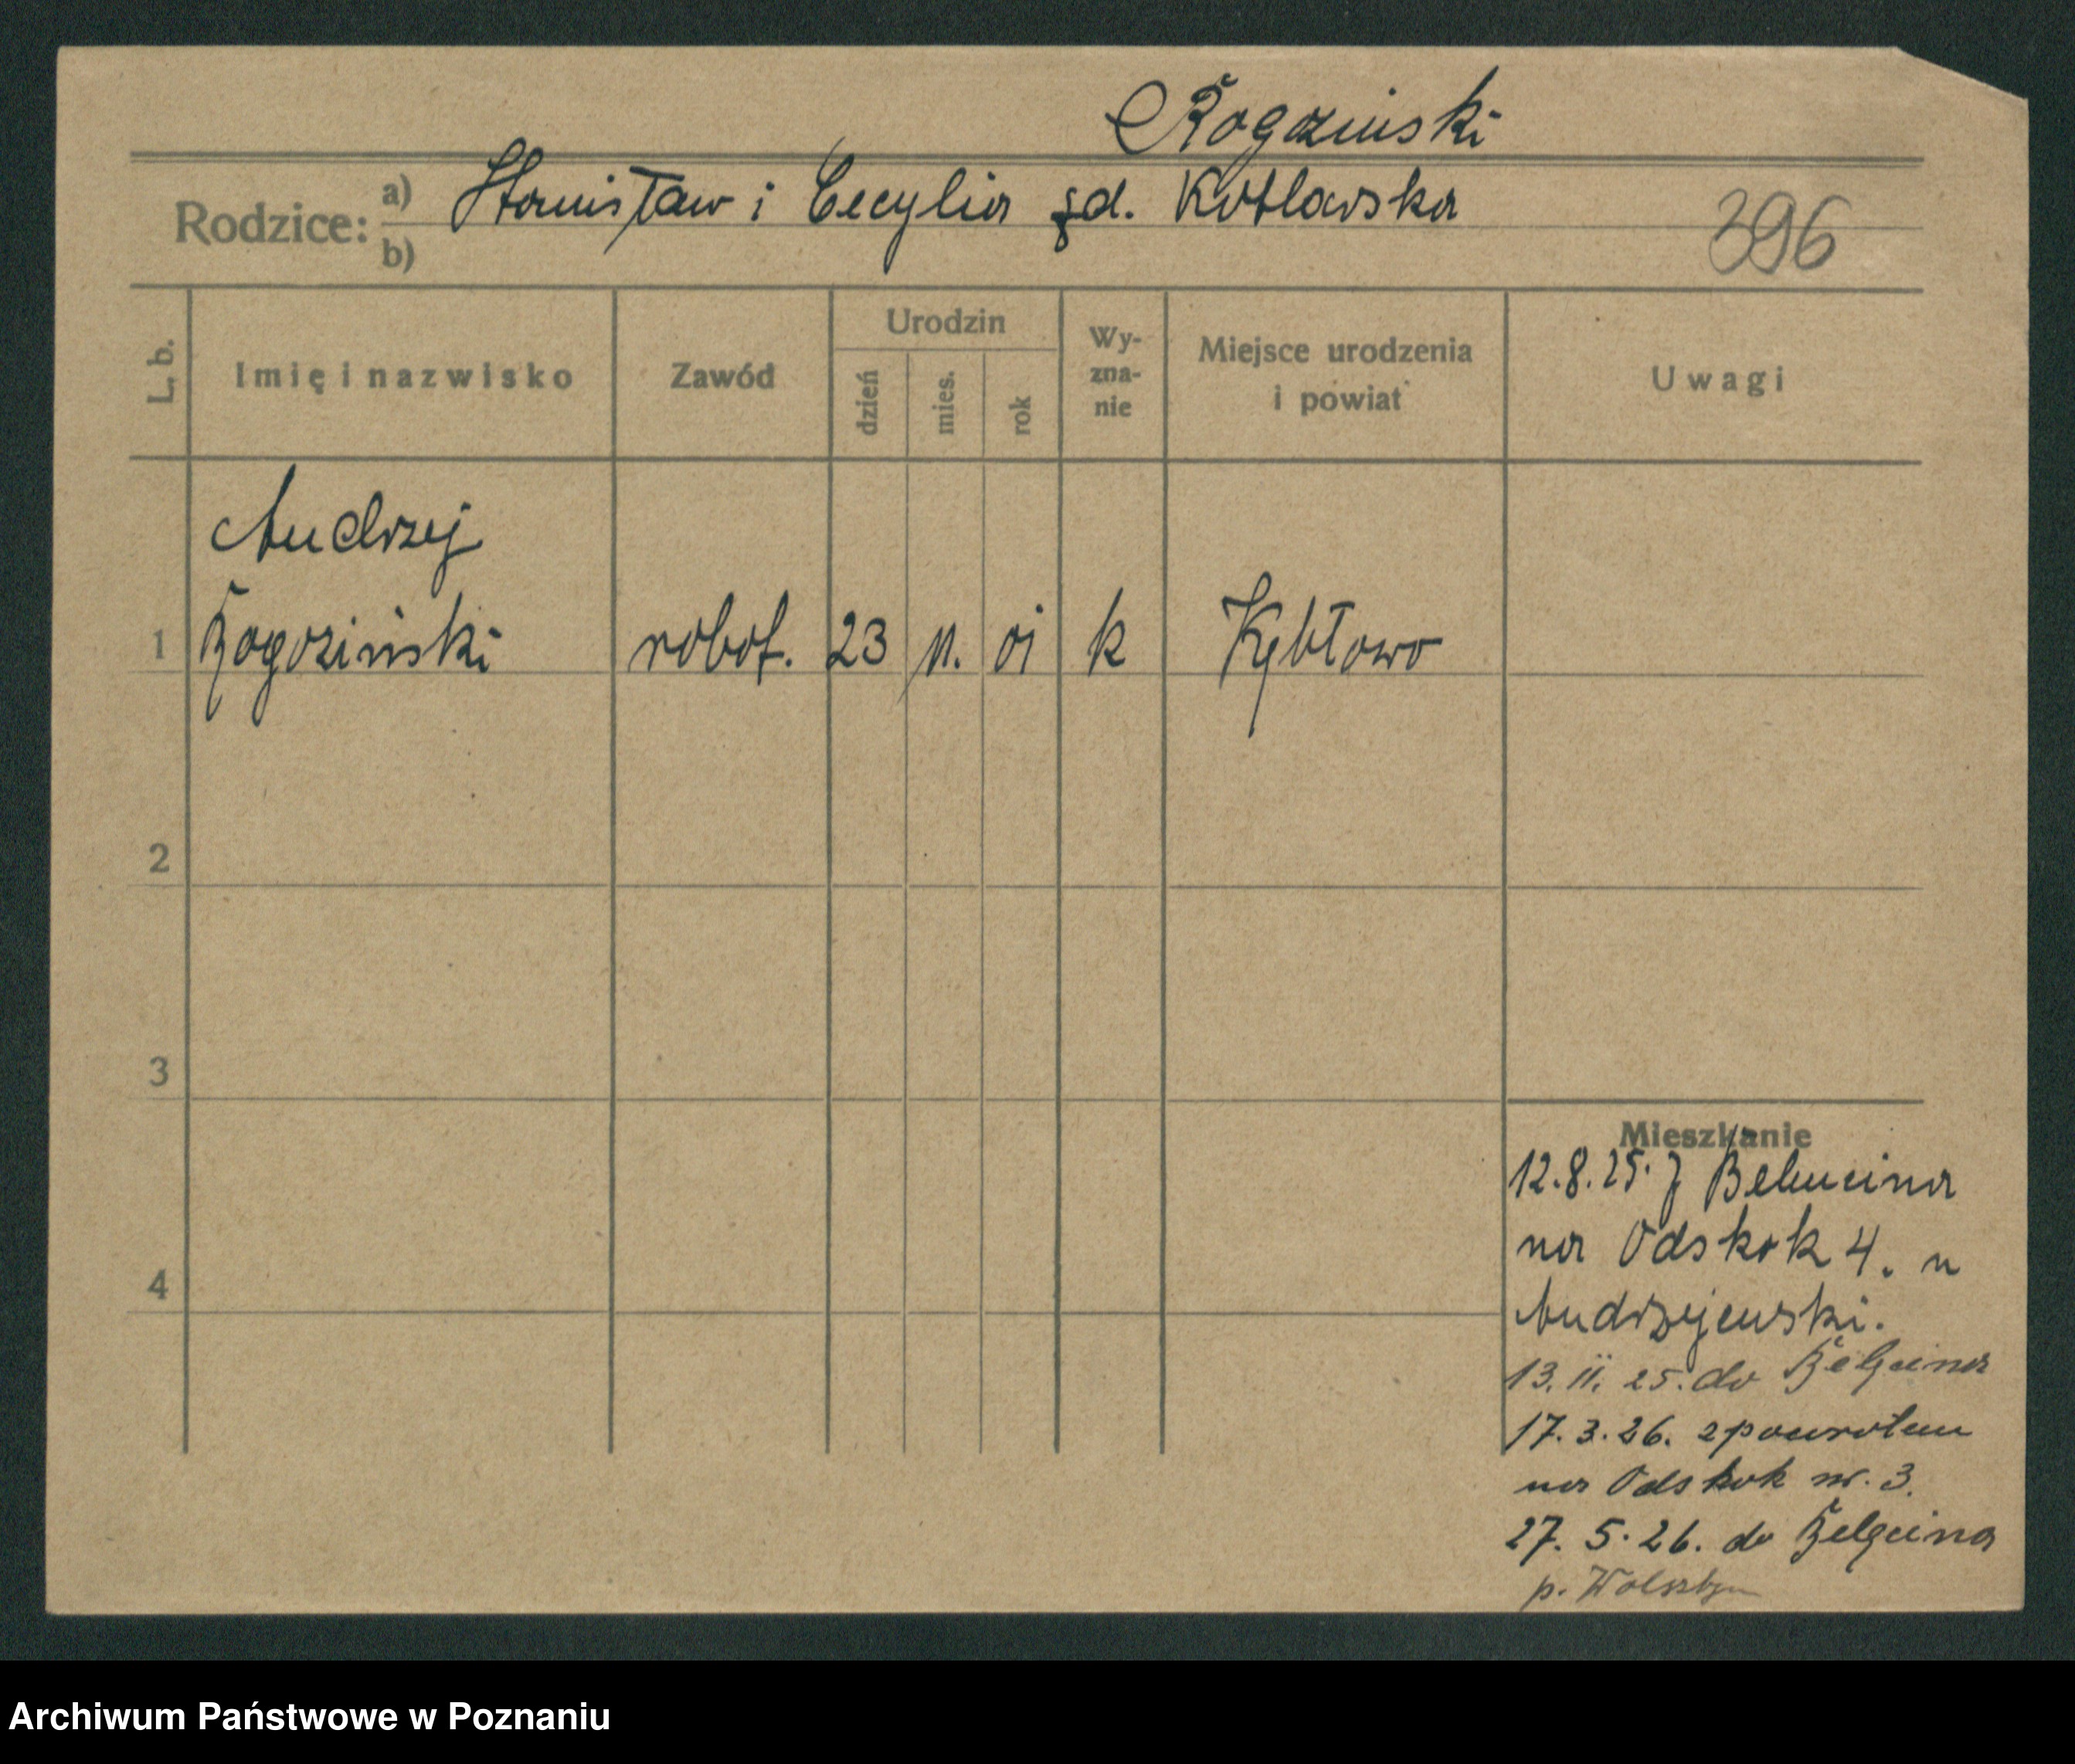 Rogoziński
Rodzice: a) Stanisław i Cecylia žd. Kotlarska
b)
396
L. b.
Imię i nazwisko
Zawód
Urodzin
dzień
mies.
rok
Wy-
zna-
nie
Miejsce urodzenia
i powiat
Uwagi
Andrzej
1 Rogoziński robot. 23 11. 01 k Kębłowo
2
3
4
Mieszkanie
12.8.25. z
na Odskok 4. u
Andrzejewski.
13. 11. 25. do
17. 3. 26. zpowrotem
na Odskok nr. 3.
27. 5. 26. do
p. Wolsztyn
Archiwum Państwowe w Poznaniu